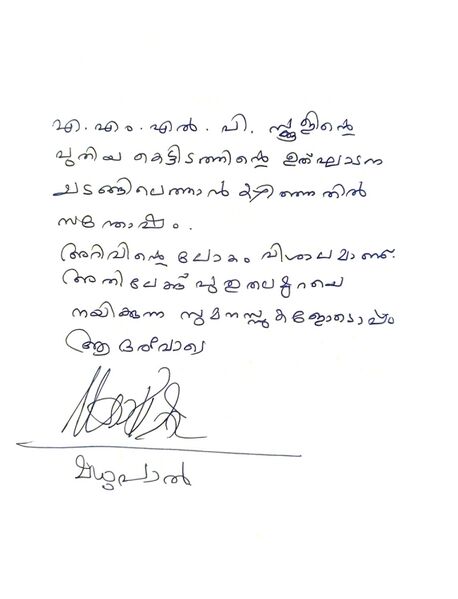 എ.എം.എൽ.പി. സ്കൂളിന്റെ
പുതിയ കെട്ടിടത്തിന്റെ ഉത്ഘാടന
ചടങ്ങിലെത്താൻ കഴിഞ്ഞതിൽ
സന്തോഷം.
അറിവിന്റെ ലോകം വിശാലമാണ്.
അതിലേക്ക് പുതുതലമുറയെ
നയിക്കുന്ന സുമനസ്സുകളോടൊപ്പം
മധുപാൽ